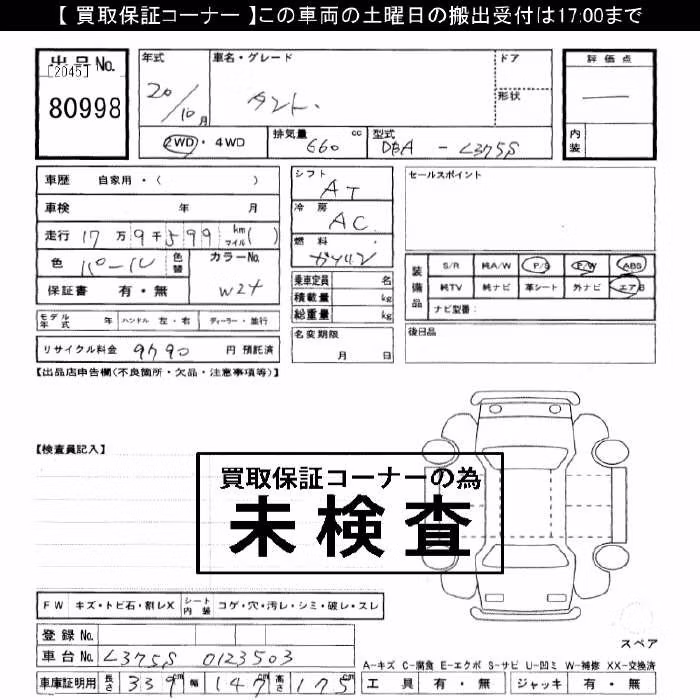 【 買取保証コーナー 】この車両の土曜日の搬出受付は17:00まで
出品No.
[2045]
80998
年式
20/10月
車名・グレード
タント.
ドア
形状
評価点
―
内装
2WD・4WD
排気量 660 cc
型式 DBA - L375S
車歴 自家用・( )
車検 年 月
走行 17万9千599 km マイル( )
色 パール 色替
カラーNo. W24
保証書 有・無
シフト AT
冷房 AC
燃料 ガソリン
乗車定員 名
積載量 kg
総重量 kg
セールスポイント
装備品
S/R 純A/W P/S P/W ABS
純TV 純ナビ 革シート 外ナビ エアB
ナビ型番:
モデル年式 年 ハンドル 左・右 ディーラー・並行
リサイクル料金 9790 円 預託済
名変期限 月 日
後日品
【出品店申告欄(不良箇所・欠品・注意事項等)】
【検査員記入】
買取保証コーナーの為
未検査
FW キズ・トビ石・割レX シート内装 コゲ・穴・汚レ・シミ・破レ・スレ
登録No.
車台No. L375S 0123503
車庫証明用 長さ 339cm 幅 147cm 高さ 175cm
スペア
A-キズ C-腐食 E-エクボ S-サビ U-凹ミ W-補修 XX-交換済
工具 有・無 ジャッキ 有・無